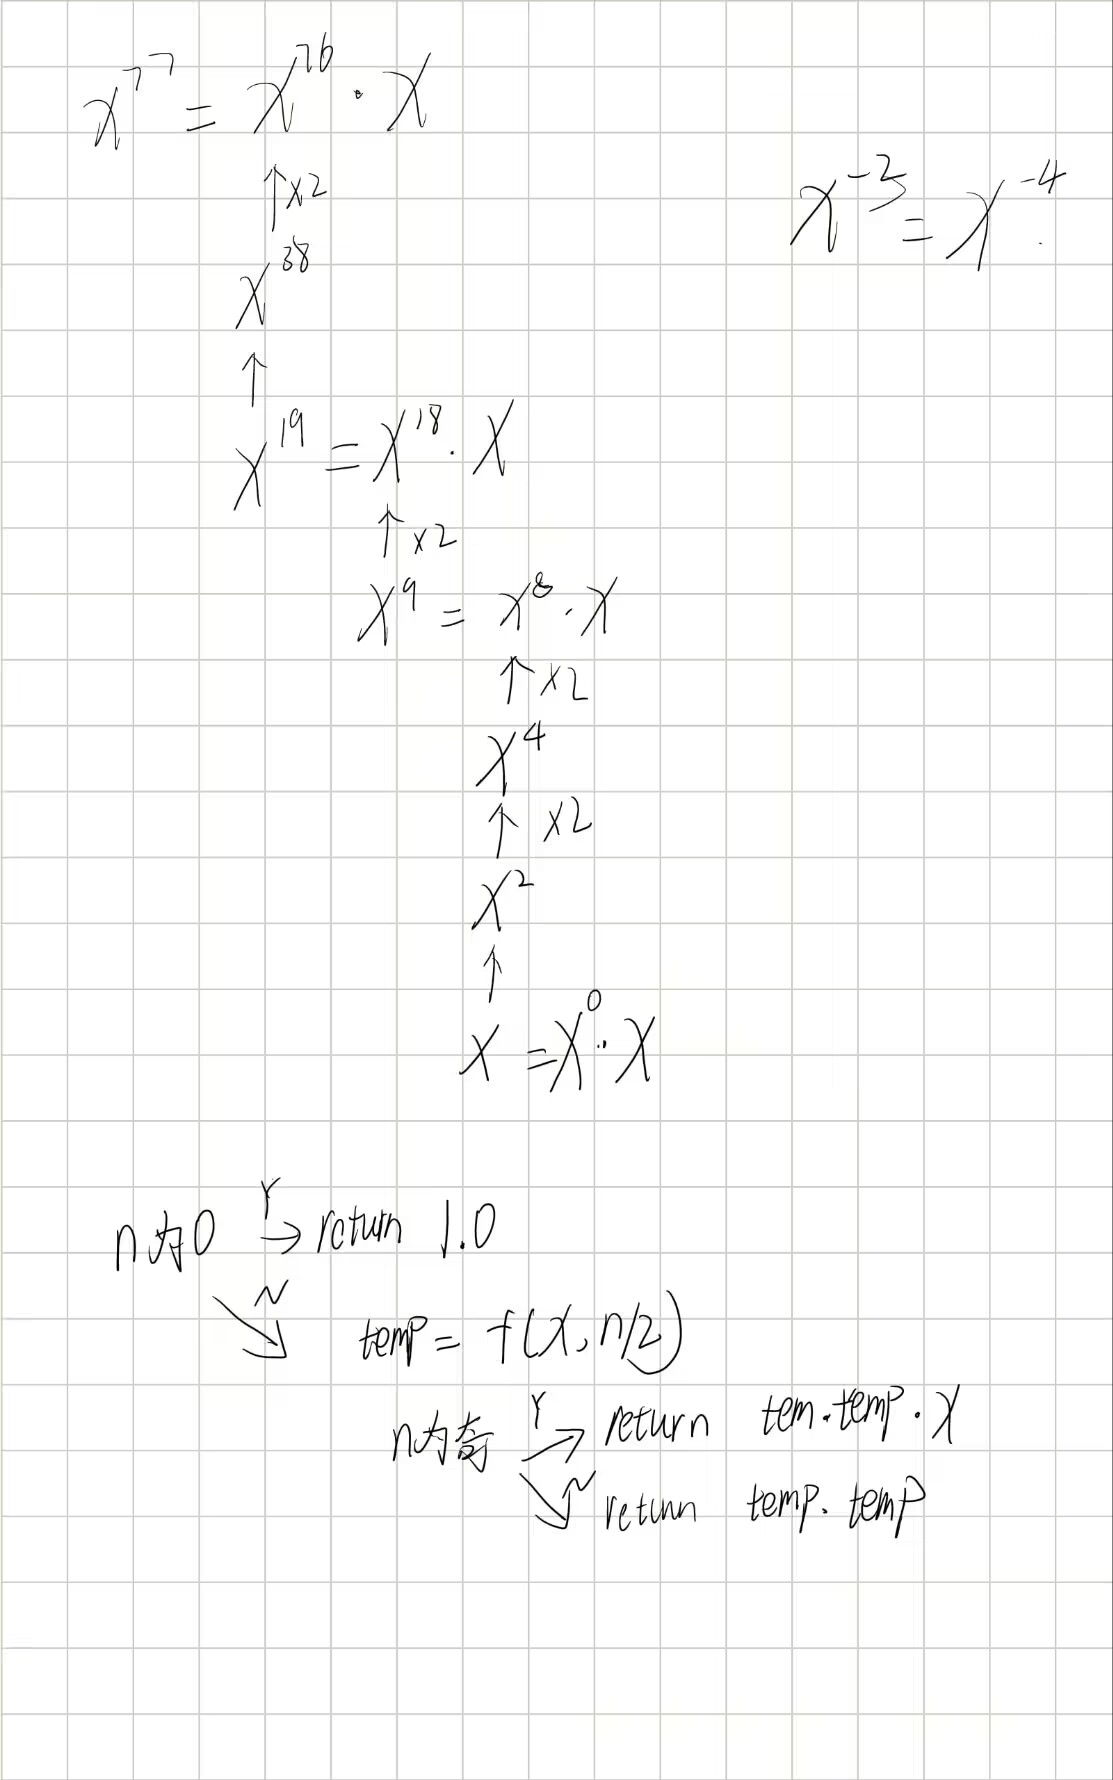 x⁷⁷ = x⁷⁶ · x
↑ x2
x⁻³ = x⁻⁴ ·
x³⁸
↑
x¹⁹ = x¹⁸ · x
↑ x2
x⁹ = x⁸ · x
↑ x2
x⁴
↑ x2
x²
↑
x = x⁰ · x
n为0 Y→ return 1.0
N↘ temp = f(x, n/2)
n为奇 Y→ return tem·temp·x
N↘ return temp·temp